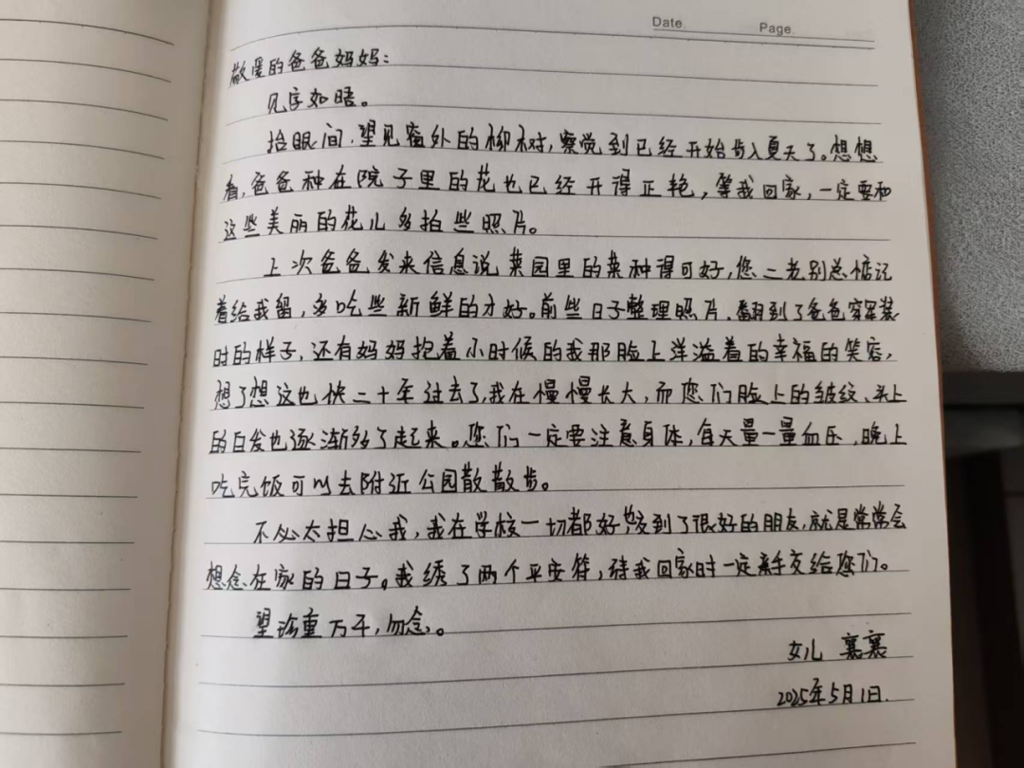 Date
Page
敬爱的爸爸妈妈：
见字如晤。
抬眼间，望见窗外的柳树，察觉到已经开始步入夏天了。想想
看，爸爸种在院子里的花也已经开得正艳，等我回家，一定要和
这些美丽的花儿多拍些照片。
上次爸爸发来信息说菜园里的菜种得可好，您二老别总惦记
着给我留，多吃些新鲜的才好。前些日子整理照片，翻到了爸爸穿军装
时的样子，还有妈妈抱着小时候的我那脸上洋溢着的幸福的笑容，
想了想这也快二十年过去了，我在慢慢长大，而您们脸上的皱纹、头上
的白发也逐渐多了起来。您们一定要注意身体，每天量一量血压，晚上
吃完饭可以去附近公园散散步。
不必太担心我，我在学校一切都好，交到了很好的朋友，就是常常会
想念在家的日子。我绣了两个平安符，待我回家时一定亲手交给您们。
望珍重万千，勿念。
女儿 襄襄
2025年5月1日.